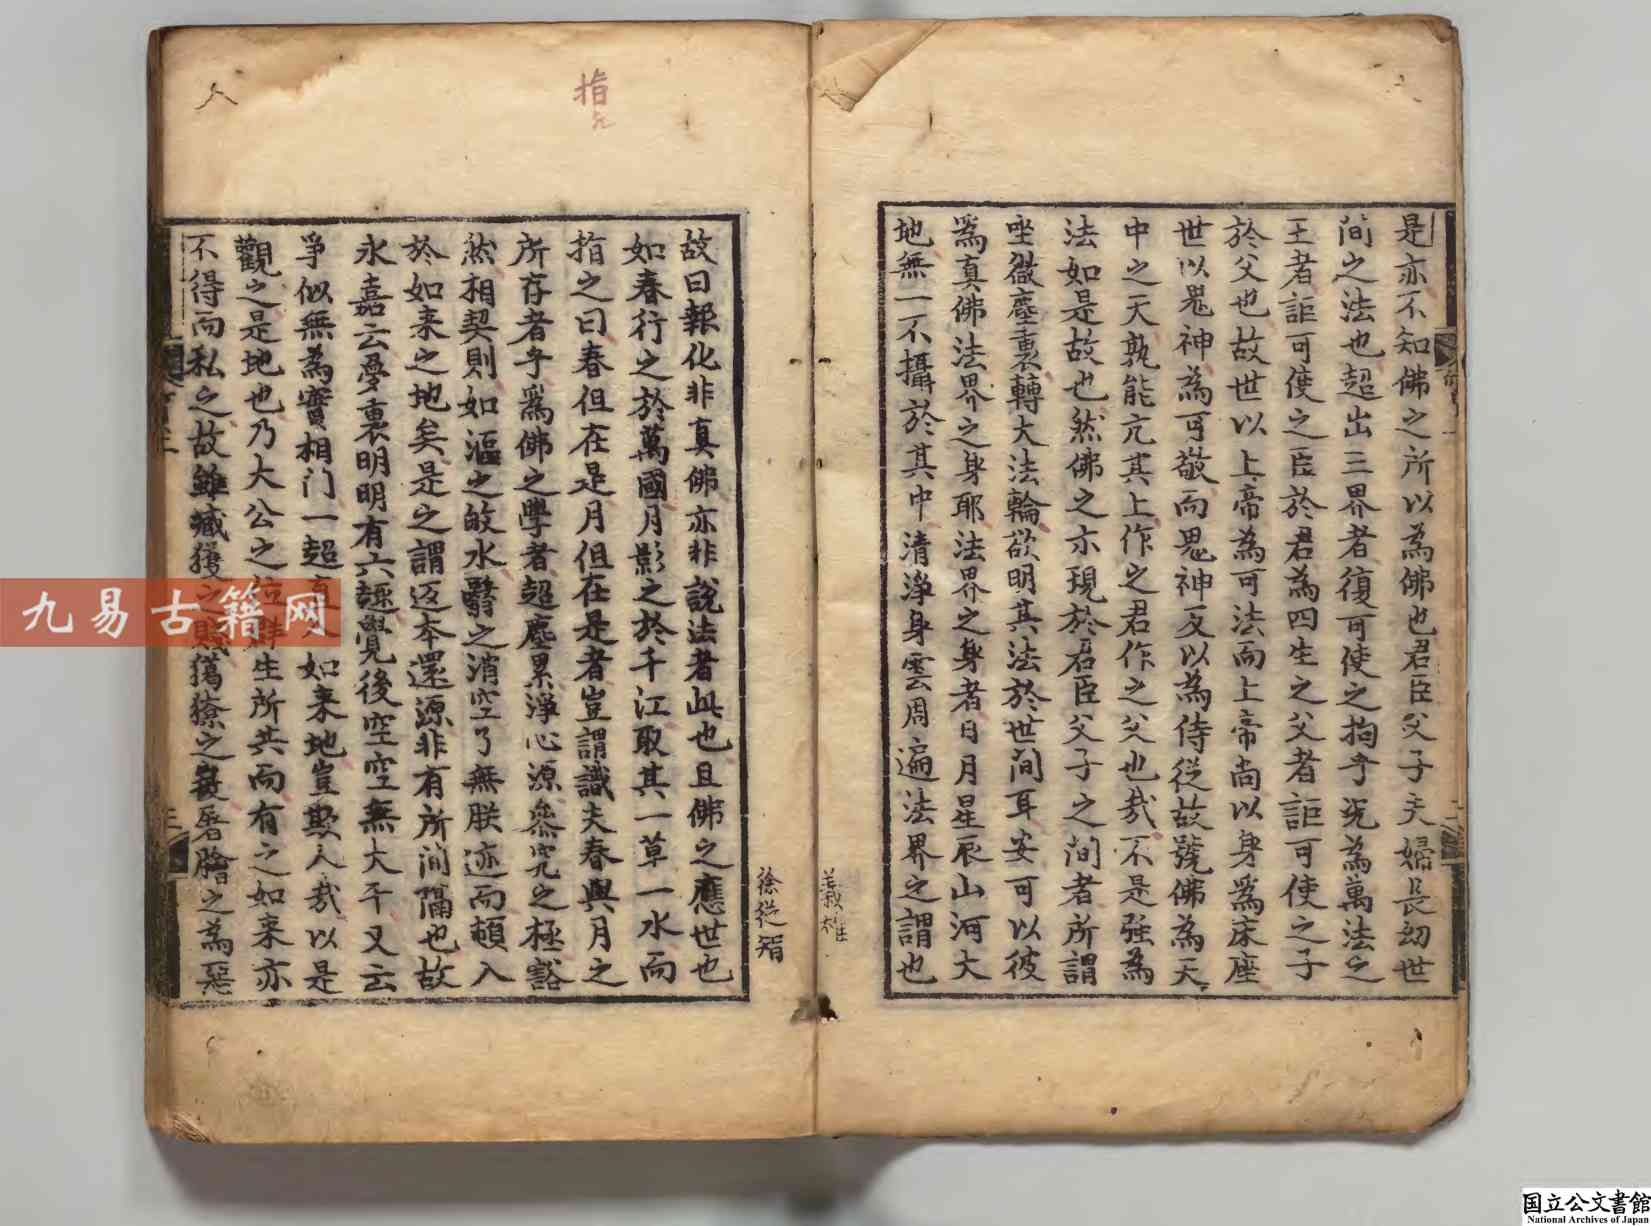 是亦不知佛之所以為佛也君臣父子夫婦長幼世
间之法也超出三界者復可使之拘乎况為萬法之
王者詎可使之臣於君為四生之父者詎可使之子
於父也故世以上帝為可法而上帝尚以身為床座
世以鬼神為可敬而鬼神反以為侍従故號佛為天
中之天孰能亢其上作之君作之父也哉不是强為
法如是故也然佛之亦現於君臣父子之间者所謂
坐微塵裏轉大法輪欲明其法於世间耳安可以彼
為真佛法界之身耶法界之身者日月星辰山河大
地無一不攝於其中清淨身雲周遍法界之謂也
義雄
徐従智
故曰報化非真佛亦非說法者此也且佛之應世也
如春行之於萬國月影之於千江取其一草一水而
指之曰春但在是月但在是者豈謂識夫春與月之
所存者乎為佛之學者超塵累淨心源叅究之極豁
然相契則如漚之於水翳之消空了無朕迹而頓入
於如来之地矣是之謂返本還源非有所间隔也故
永嘉云夢裏明明有六趣覺後空空無大千又云
爭似無為實相门一超直入如来地豈欺人哉以是
觀之是地也乃大公之位群生所共而有之如来亦
不得而私之故雖臧獲之賤獦獠之屠膾之為惡
指
九易古籍网
国立公文書館
National Archives of Japan